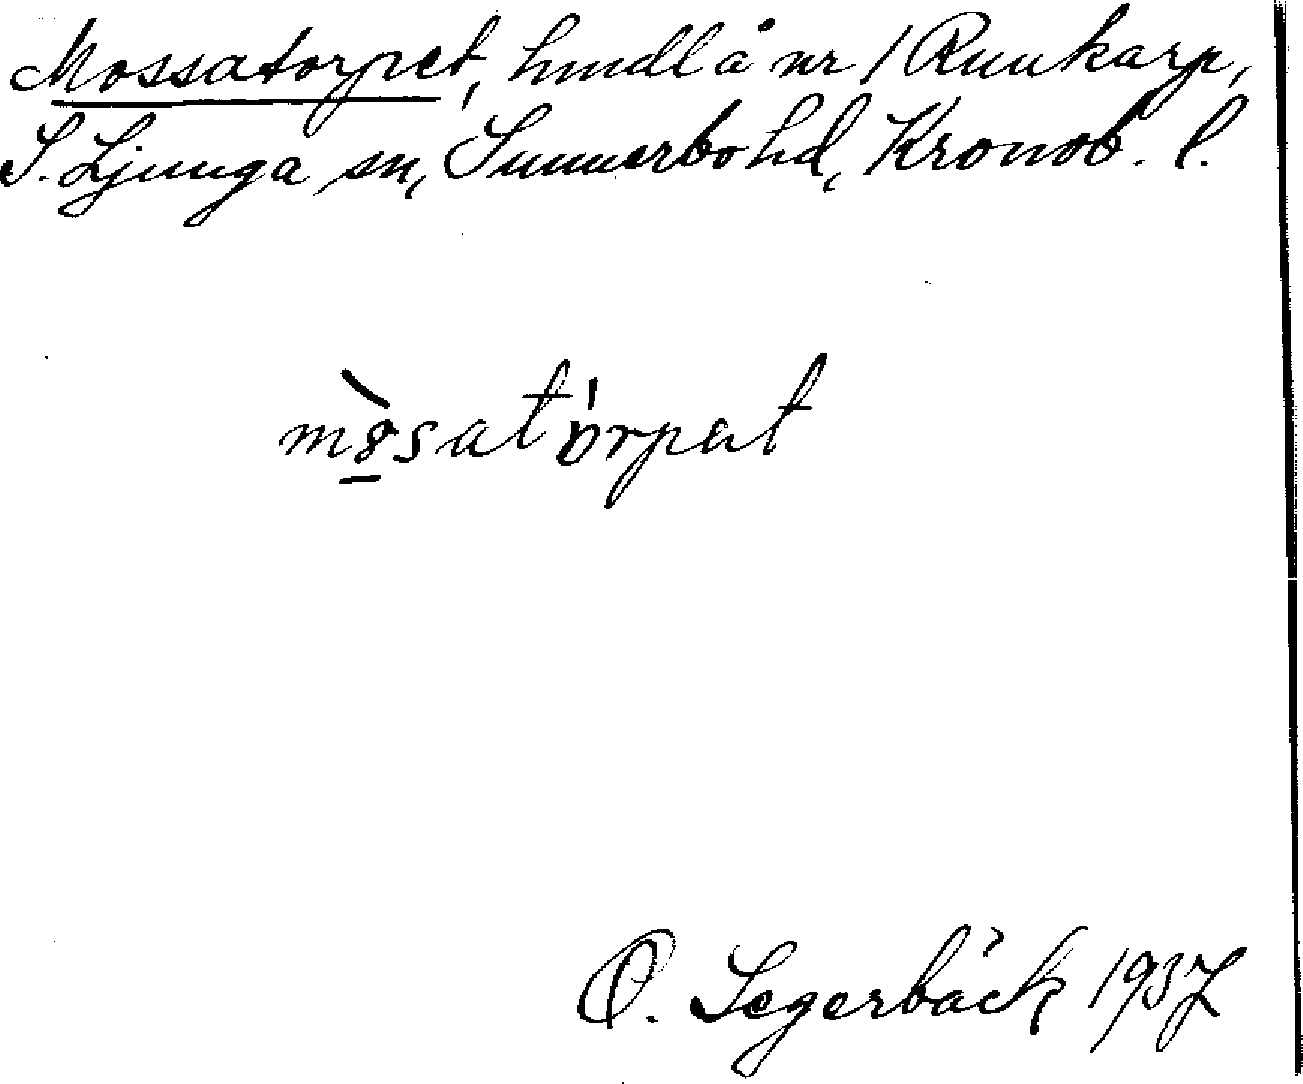 Mossatorpet, hmdl å nr 1 Runkarp,
S. Ljunga sn, Sunnerbo hd, Kronob. l.
mò̲satɒ́rpat
O. Segerbäck 1937